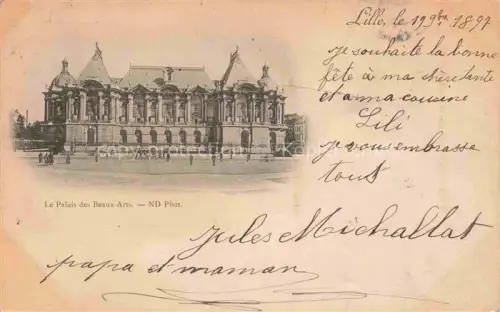 Lille, le 19 9bre 1897
Je souhaite la bonne
fête à ma chère tante
et a ma cousine
Lili
je vous embrasse
tous
Jules Michallat
papa et maman
Le Palais des Beaux-Arts. — ND Phot.